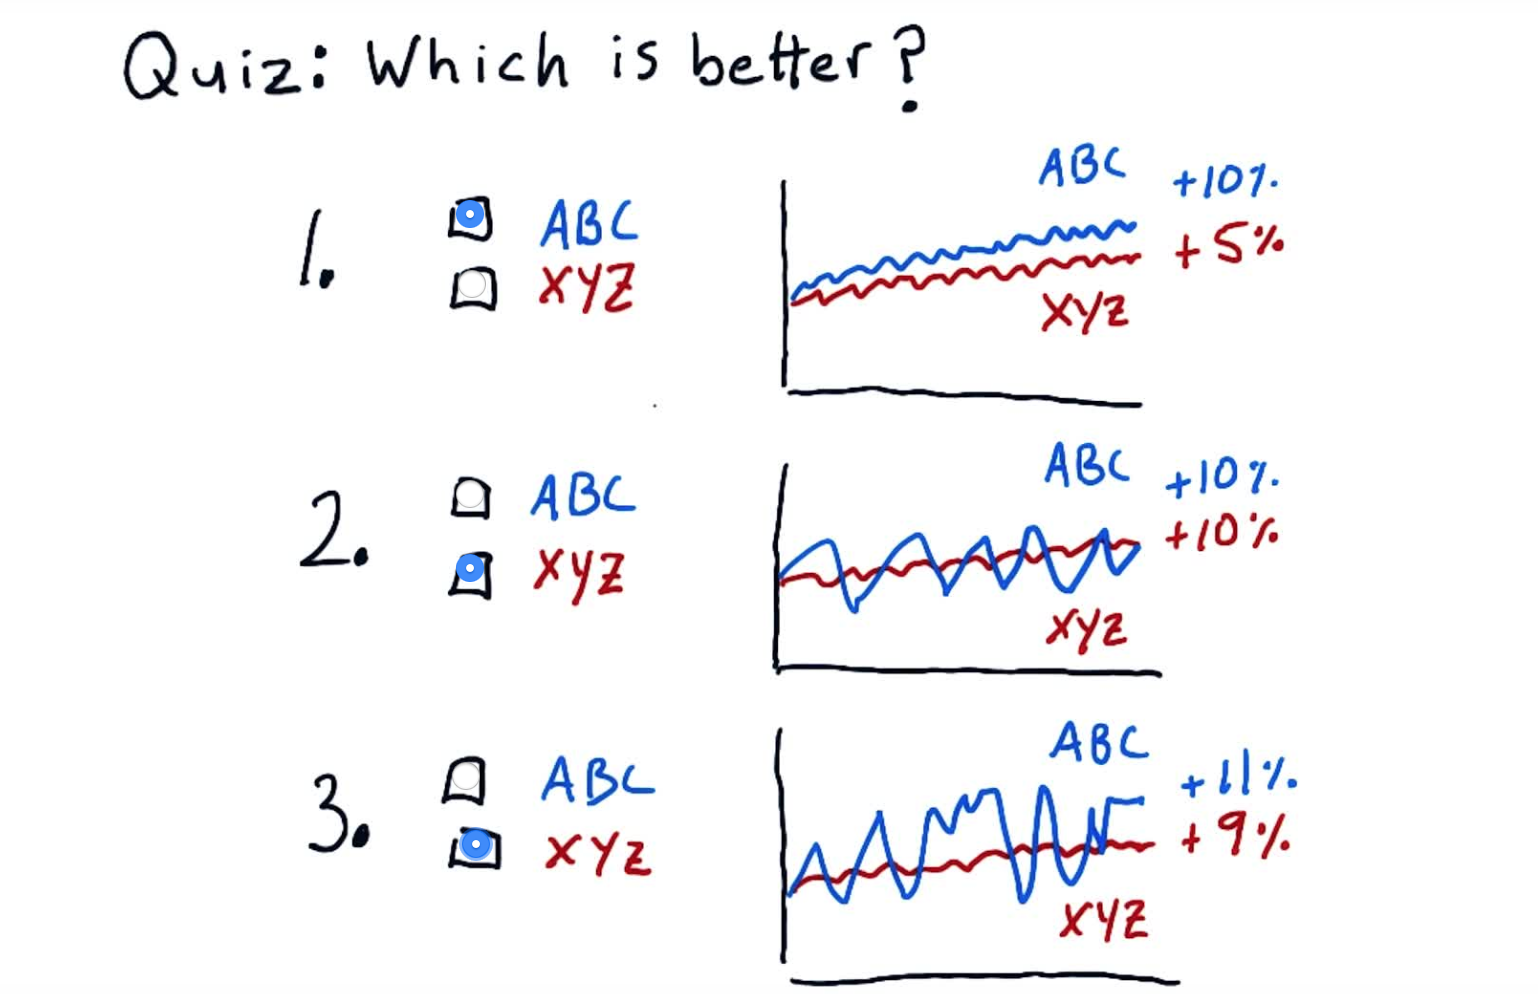 Quiz: Which is better?
1.
ABC
XYZ
ABC +10%
+5%
XYZ
2.
ABC
XYZ
ABC +10%
+10%
XYZ
3.
ABC
XYZ
ABC
+11%
+9%
XYZ